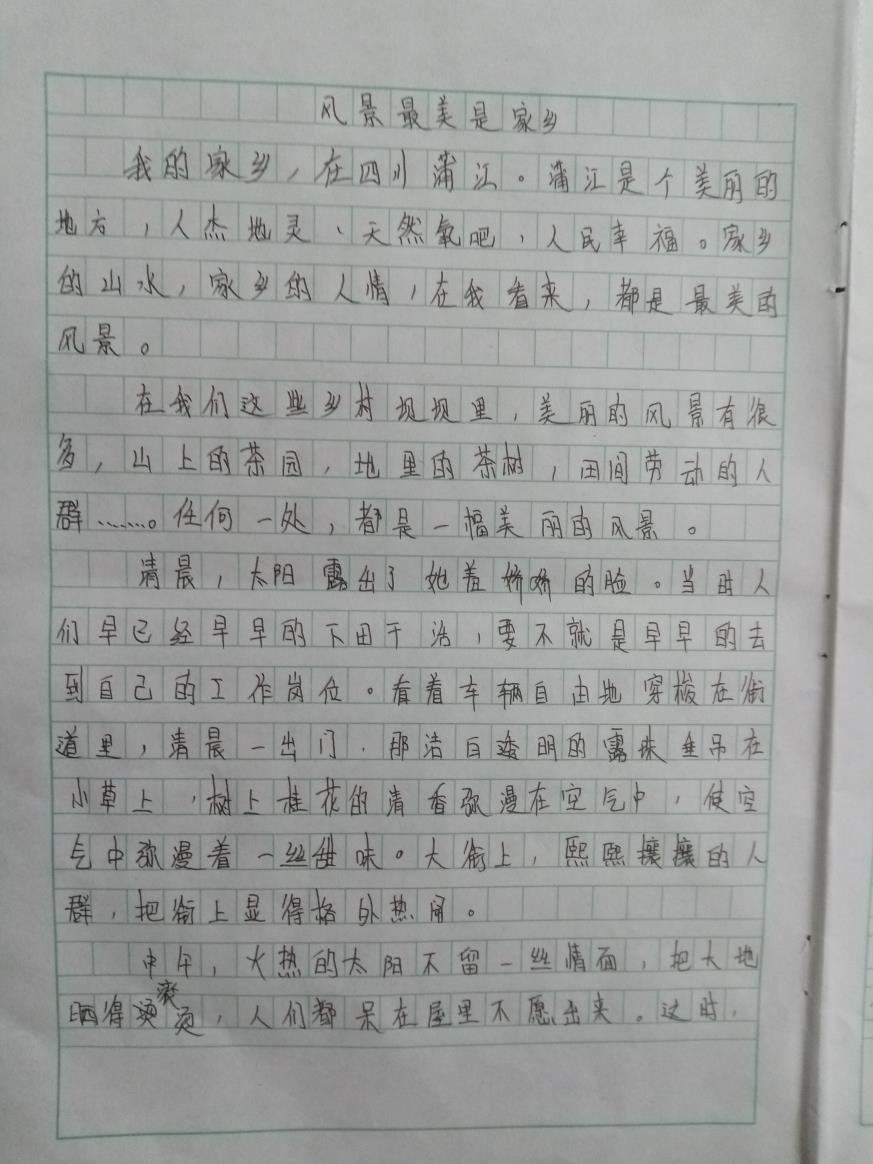 风景最美是家乡
我的家乡，在四川蒲江。蒲江是个美丽的
地方，人杰地灵、天然氧吧，人民幸福。家乡
的山水，家乡的人情，在我看来，都是最美的
风景。
在我们这些乡村坝坝里，美丽的风景有很
多，山上的茶园，地里的茶树，田间劳动的人
群……。任何一处，都是一幅美丽的风景。
清晨，太阳露出了她羞娇娇的脸。当时人
们早已经早早的下田干活，要不就是早早的去
到自己的工作岗位。看着车辆自由地穿梭在街
道里，清晨一出门，那洁白透明的露珠垂吊在
小草上，树上桂花的清香弥漫在空气中，使空
气中弥漫着一丝甜味。大街上，熙熙攘攘的人
群，把街上显得格外热闹。
中午，火热的太阳不留一丝情面，把大地
晒得滚烫，人们都呆在屋里不愿出来。这时，